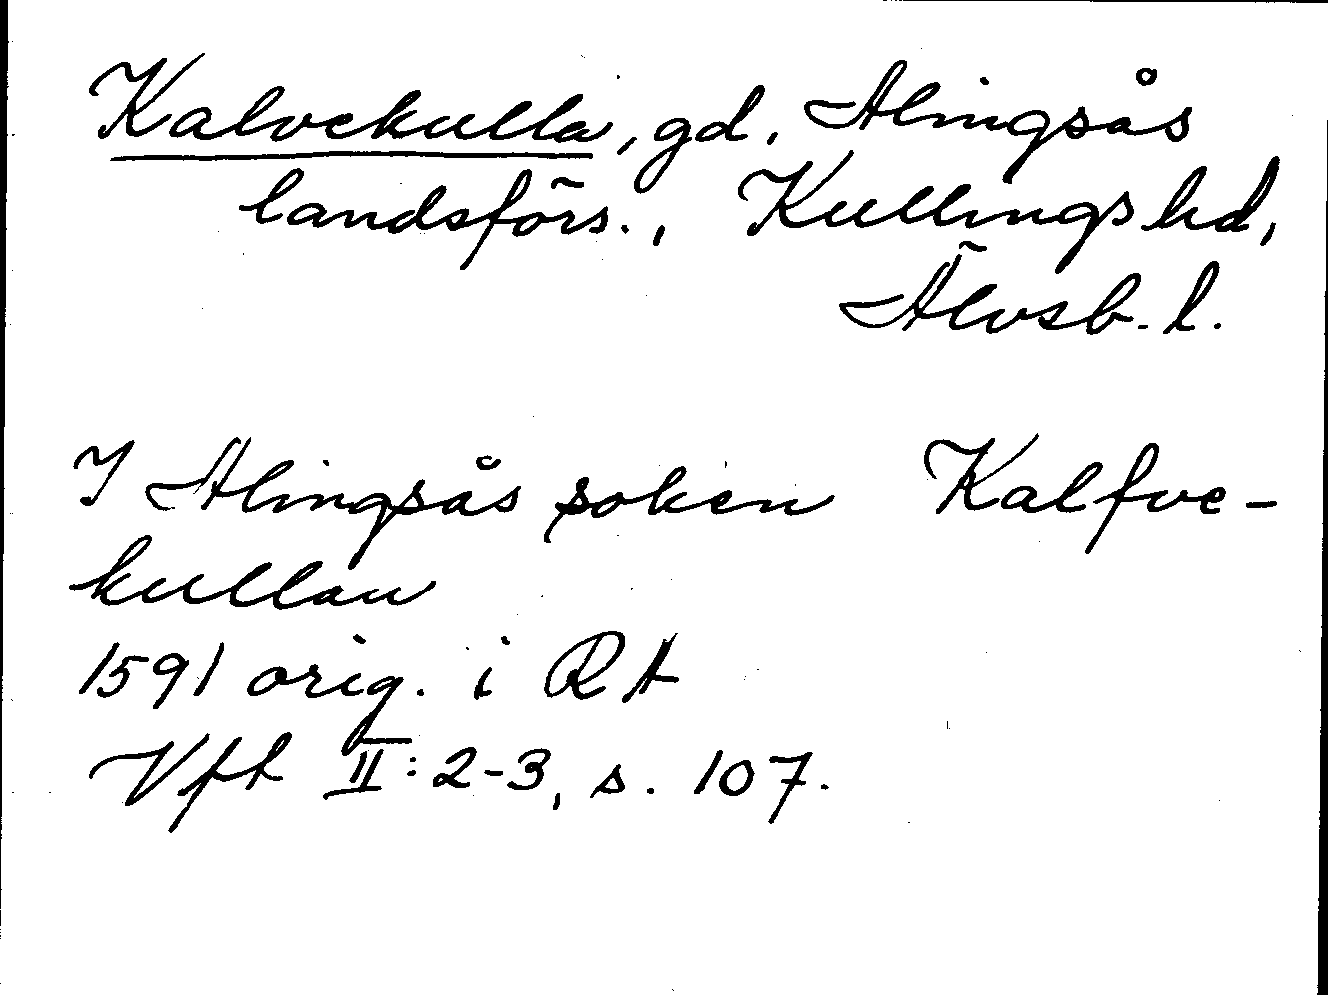 Kalvekulla, gd, Alingsås
landsförs., Kullings hd,
Älvsb. l.
I Alingsås soken Kalfve-
kullan
1591 orig. i RA
Vft II: 2-3, s. 107.